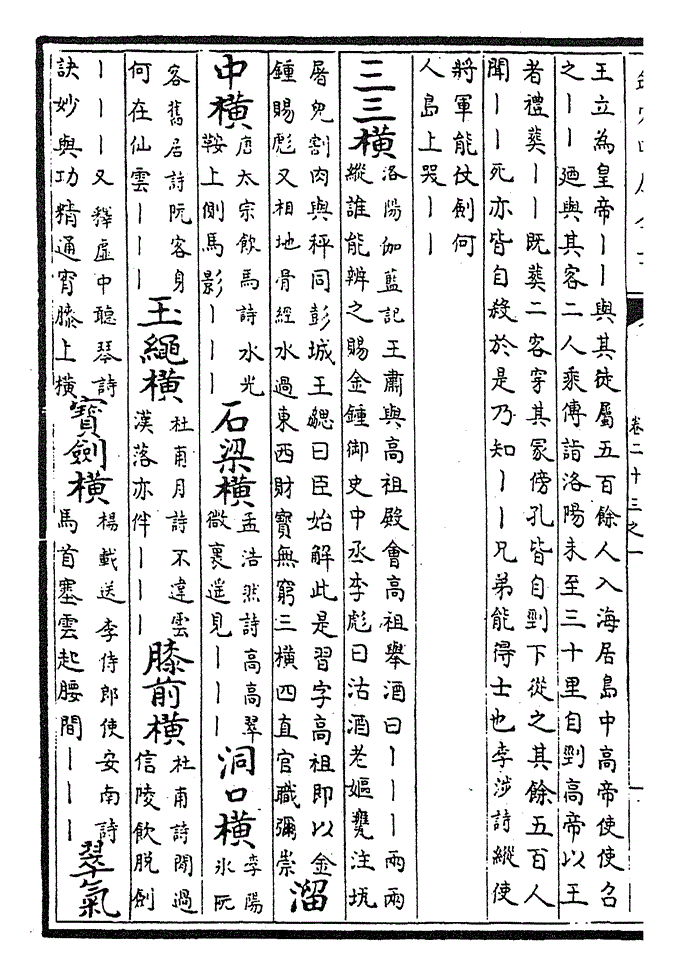 卷二十三之一
王立為皇帝丨丨與其徒屬五百餘人入海居島中高帝使使召
之丨丨廼與其客二人乘傳詣洛陽未至三十里自剄高帝以王
者禮葬丨丨既葬二客穿其冢傍孔皆自剄下從之其餘五百人
聞丨丨死亦皆自殺於是乃知丨丨兄弟能得士也李涉詩縱使
將軍能仗劍何
人島上哭丨丨
三三橫
洛陽伽藍記王肅與高祖殿會高祖舉酒曰丨丨丨兩兩
縱誰能辨之賜金鍾御史中丞李彪曰沽酒老嫗甕注坑
屠兒割肉與秤同彭城王勰曰臣始解此是習字高祖即以金
鍾賜彪又相地骨經水過東西財寶無窮三橫四直官職彌崇
溜
中橫
唐太宗飲馬詩水光
鞍上側馬影丨丨丨
石梁橫
孟浩然詩高高翠
微裏遥見丨丨丨
洞口橫
李陽
冰阮
客舊居詩阮客身
何在仙雲丨丨丨
玉繩橫
杜甫月詩不違雲
漢落亦伴丨丨丨
膝前橫
杜甫詩閒過
信陵飲脱劍
丨丨丨又釋虛中聽琴詩
訣妙與功精通宵膝上橫
寶劍橫
楊載送李侍郎使安南詩
馬首塞雲起腰間丨丨丨
翠氣